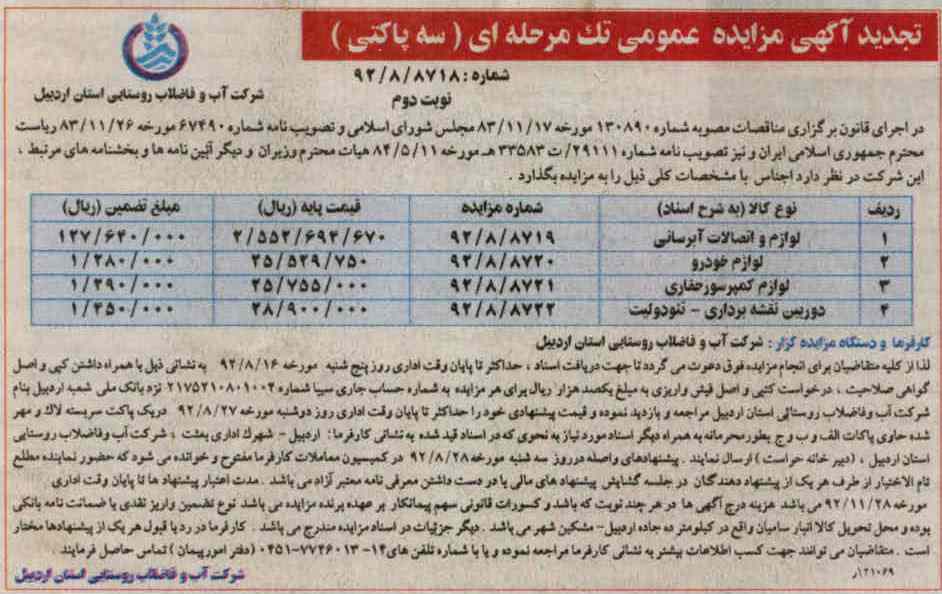 تجدید آگهی مزایده عمومی تك مرحله ای ( سه پاکتی )
شماره : ۹۲/۸/۸۷۱۸
نوبت دوم
شرکت آب و فاضلاب روستایی استان اردبیل
در اجرای قانون برگزاری مناقصات مصوبه شماره ۱۳۰۸۹۰ مورخه ۸۳/۱۱/۱۷ مجلس شورای اسلامی و تصویب نامه شماره ۶۷۴۹۰ مورخه ۸۳/۱۱/۲۶ ریاست
محترم جمهوری اسلامی ایران و نیز تصویب نامه شماره ۲۹۱۱۱/ت ۳۳۵۸۳ هـ مورخه ۸۴/۵/۱۱ هیات محترم وزیران و دیگر آئین نامه ها و بخشنامه های مرتبط ،
این شرکت در نظر دارد اجناس با مشخصات کلی ذیل را به مزایده بگذارد .
ردیف نوع کالا (به شرح اسناد) شماره مزایده قیمت پایه (ریال) مبلغ تضمین (ریال)
۱ لوازم و اتصالات آبرسانی ۹۲/۸/۸۷۱۹ ۲/۵۵۲/۶۹۴/۶۷۰ ۱۲۷/۶۴۰/۰۰۰
۲ لوازم خودرو ۹۲/۸/۸۷۲۰ ۲۵/۵۲۹/۷۵۰ ۱/۲۸۰/۰۰۰
۳ لوازم کمپرسورحفاری ۹۲/۸/۸۷۲۱ ۲۵/۷۵۵/۰۰۰ ۱/۲۹۰/۰۰۰
۴ دوربین نقشه برداری - تئودولیت ۹۲/۸/۸۷۲۲ ۲۸/۹۰۰/۰۰۰ ۱/۴۵۰/۰۰۰
کارفرما و دستگاه مزایده گزار : شرکت آب و فاضلاب روستایی استان اردبیل
لذا از کلیه متقاضیان برای انجام مزایده فوق دعوت می گردد تا جهت دریافت اسناد ، حداکثر تا پایان وقت اداری روز پنج شنبه مورخه ۹۲/۸/۱۶ به نشانی ذیل با همراه داشتن کپی و اصل
گواهی صلاحیت ، درخواست کتبی و اصل فیش واریزی به مبلغ یکصد هزار ریال برای هر مزایده به شماره حساب جاری سیبا شماره ۲۱۷۵۲۱۰۸۰۱۰۰۴ نزد بانک ملی شعبه اردبیل بنام
شرکت آب وفاضلاب روستائی استان اردبیل مراجعه و بازدید نموده و قیمت پیشنهادی خود را حداکثر تا پایان وقت اداری روز دوشنبه مورخه ۹۲/۸/۲۷ دریک پاکت سربسته لاک و مهر
شده حاوی پاکات الف و ب و ج بطور محرمانه به همراه دیگر اسناد مورد نیاز به نحوی که در اسناد قید شده به نشانی کارفرما : اردبیل – شهرک اداری بعثت ، شرکت آب وفاضلاب روستایی
استان اردبیل ، (دبیر خانه حراست ) ارسال نمایند . پیشنهادهای واصله درروز سه شنبه مورخه ۹۲/۸/۲۸ در کمیسیون معاملات کارفرما مفتوح و خوانده می شود که حضور نماینده مطلع
تام الاختیار از طرف هر یک از پیشنهاد دهندگان در جلسه گشایش پیشنهاد های مالی با در دست داشتن معرفی نامه معتبر آزاد می باشد . مدت اعتبار پیشنهاد ها تا پایان وقت اداری
مورخه ۹۲/۱۱/۲۸ می باشد هزینه درج آگهی ها در هر چند نوبت که باشد و کسورات قانونی سهم پیمانکار بر عهده برنده مزایده می باشد نوع تضمین واریز نقدی یا ضمانت نامه بانکی
بوده و محل تحویل کالا انبار سامیان واقع در کیلومتر ده جاده اردبیل- مشکین شهر می باشد . دیگر جزئیات در اسناد مزایده مندرج می باشد . کارفرما در رد یا قبول هر یک از پیشنهادها مختار
است . متقاضیان می توانند جهت کسب اطلاعات بیشتر به نشانی کارفرما مراجعه نموده و یا با شماره تلفن های ۱۴- ۷۷۴۶۰۱۳-۰۴۵۱ (دفتر امور پیمان ) تماس حاصل فرمایند .
۱۲۱۰۶۹/ر
شرکت آب و فاضلاب روستایی استان اردبیل